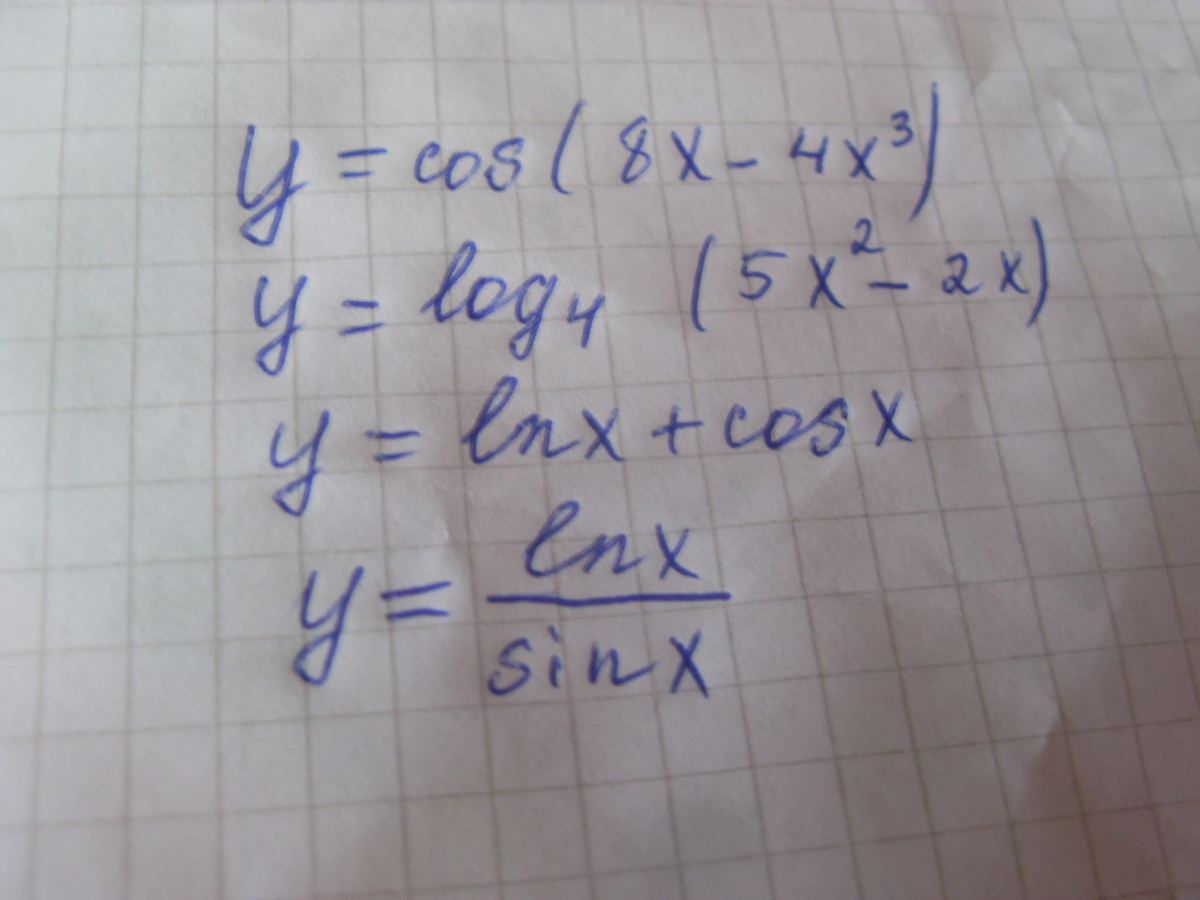 y = cos(8x - 4x³)
y = log₄ (5x² - 2x)
y = lnx + cosx
y = lnx / sinx